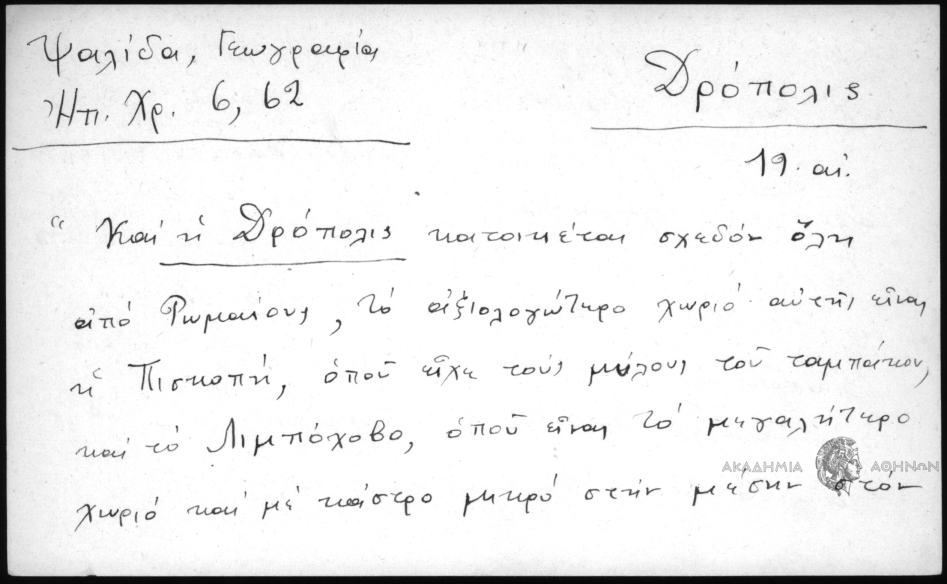 Ψαλίδα, Γεωγραφία
Ἠπ. Χρ. 6, 62
Δρόπολις
19. αἰ.
“ Καί ἡ Δρόπολις κατοικέται σχεδόν ὅλη
ἀπό Ρωμαίους, τό ἀξιολογώτερο χωριό αὐτῆς εἶναι
ἡ Πισκοπή, ὁποῦ εἶχε τούς μύλους τοῦ ταμπάκου,
καί τό Λιμπόχοβο, ὁποῦ εἶναι τό μεγαλήτερο
χωριό καί μέ κάστρο μικρό στήν μέσην στόν
ΑΚΑΔΗΜΙΑ ΑΘΗΝΩΝ